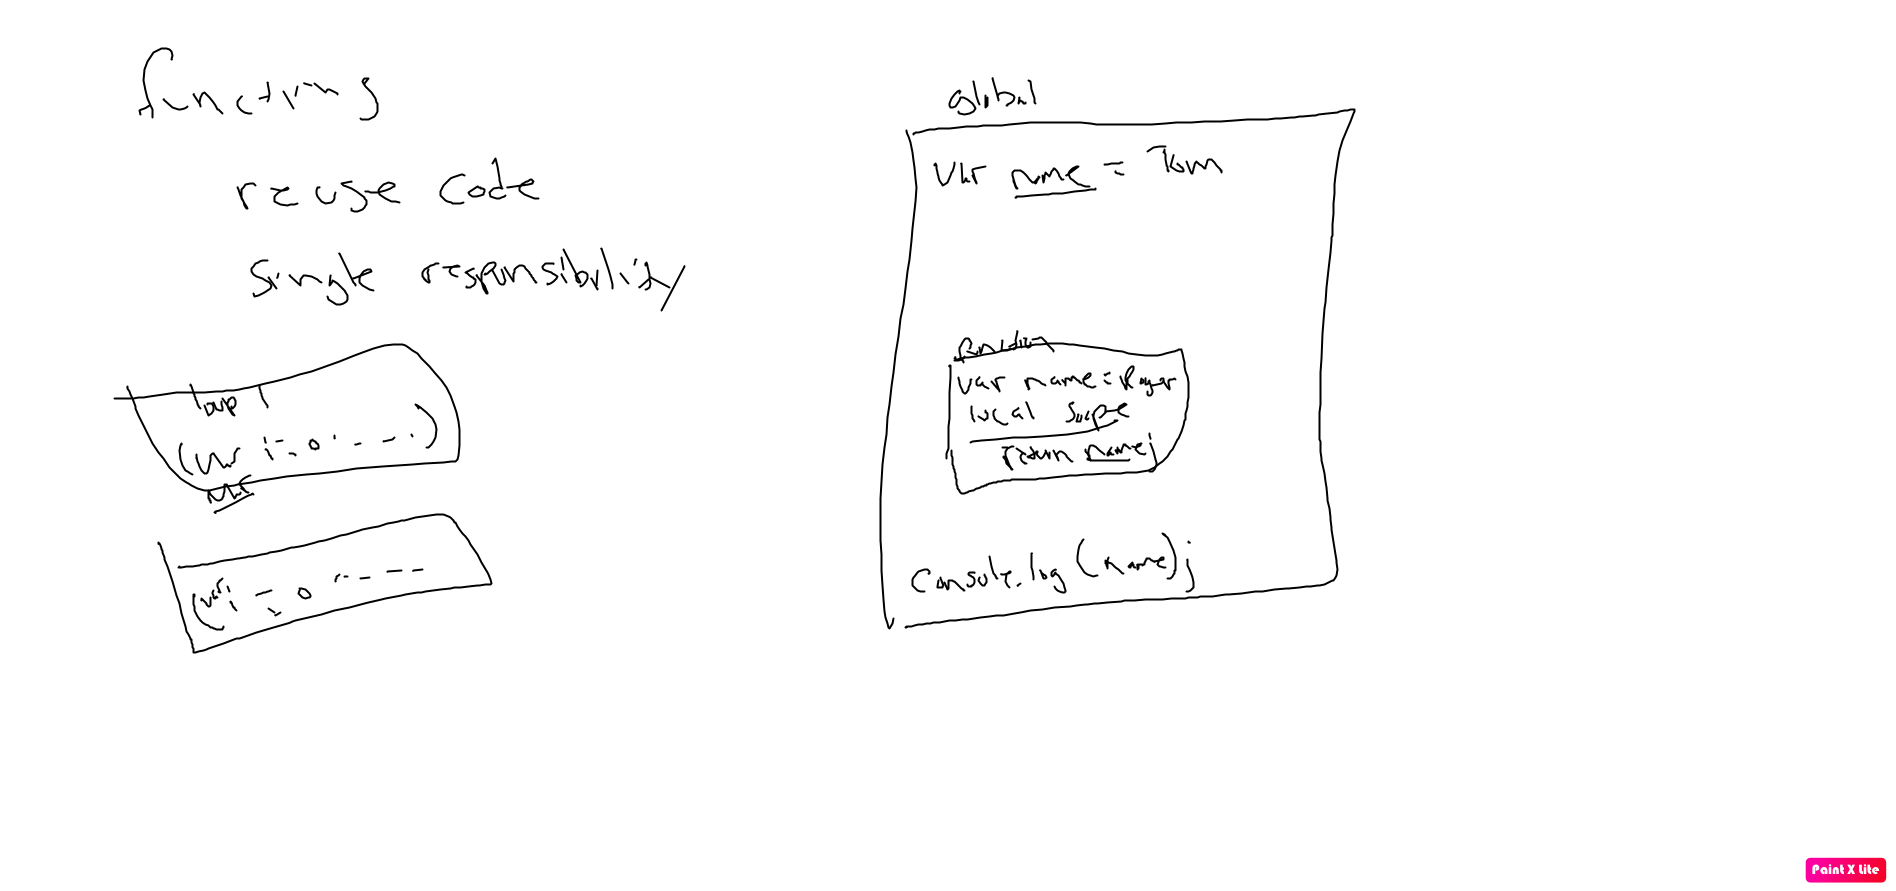 functions
reuse code
single responsibility
loop 1
(var i = 0; - - - .)
(var i = 0 ; - - - -
global
var name = Tom
function
var name = Roger
local scope
return name;
console.log(name);